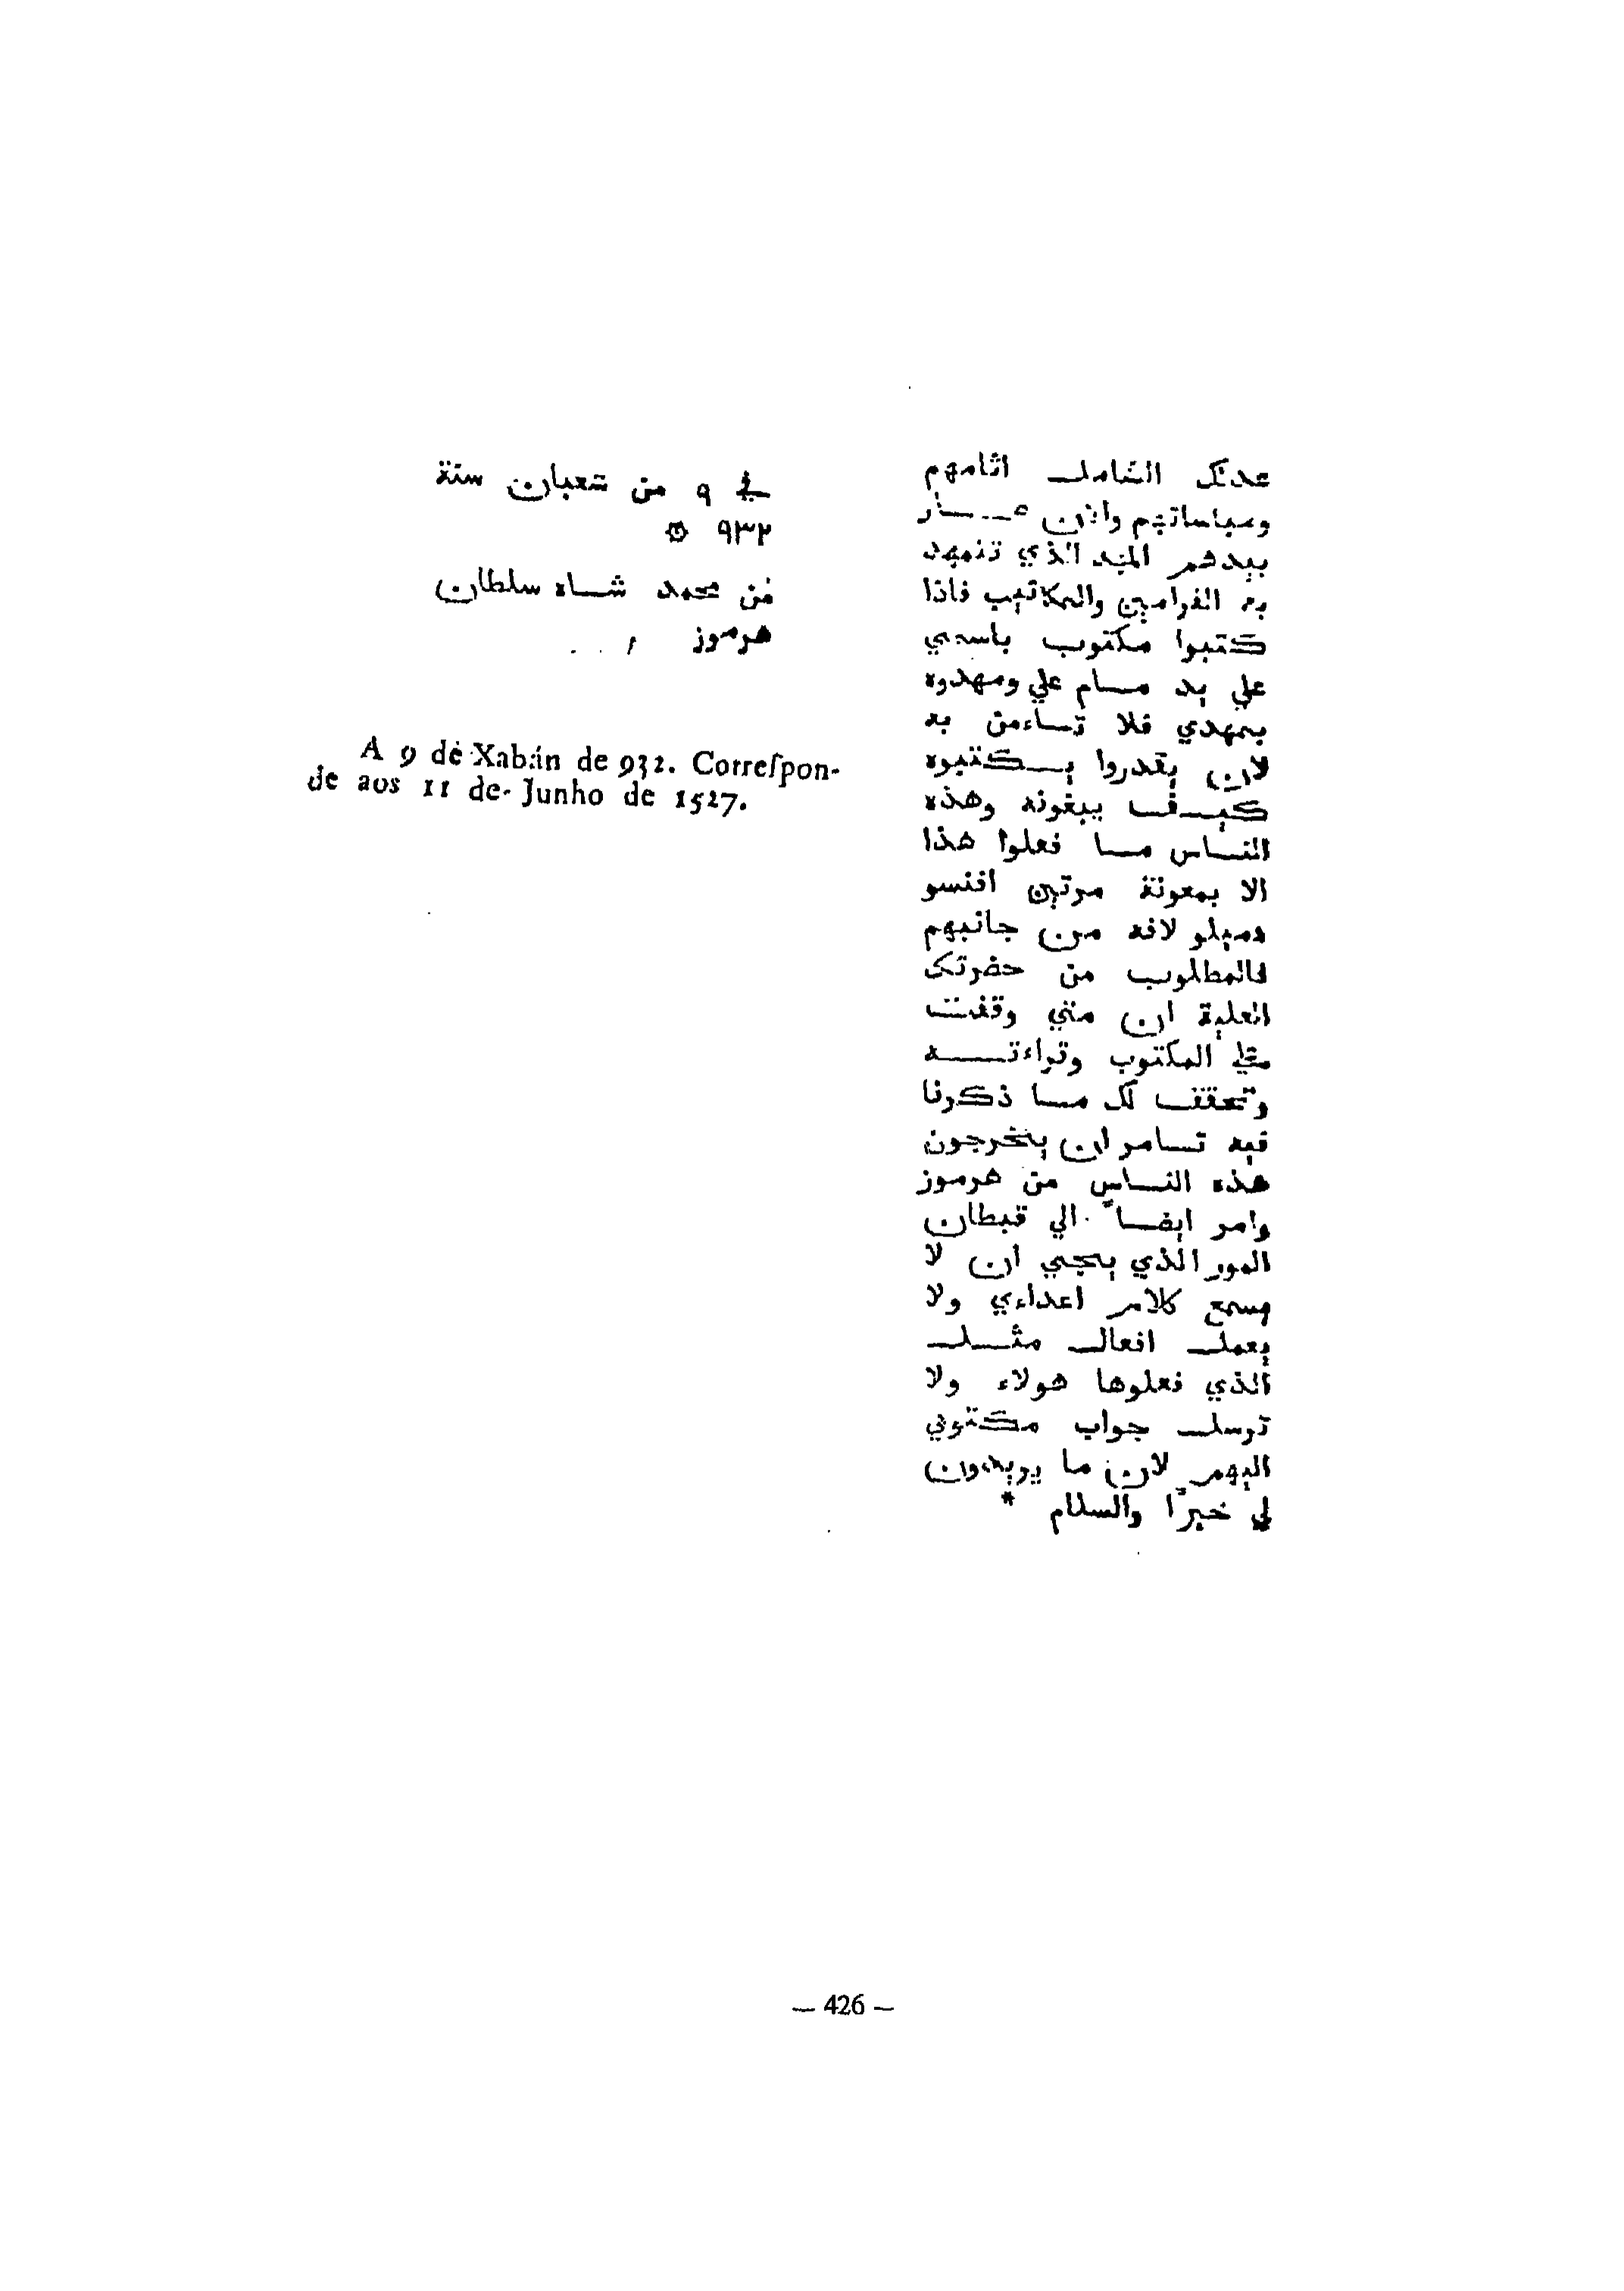 عدلك الشامل اثامهم
وسياساتهم والان صـــار
بيدهم المهد الذي تنمهد
به الفرامين والمكاتيب فاذا
كتبوا مكتوب باسمي
علي يد مسام علي ومهدوه
بمهدي فلا تساءمن به
لان يقدروا يكتبوه
كيف يبغونه وهذه
الناس ما فعلوا هذا
الا بمعونة مرتين افنسو
دميلو لانه من جانبهم
فالمطلوب من حضرتك
العلية ان متي وقفت
علي المكتوب وقراءته
وتحقق لك ما ذكرنا
فيه تسامر ان يخرجون
هذه الناس من هرموز
وامر ايضاً الي قبطان
المور الذي يجي ان لا
يسمع كلام اعداءي ولا
يعمل افعال مثل
الذي فعلوها هولاء ولا
ترسل جواب مكتوبي
اليهم لان ما يريدون
لي خيرًا والسلام *
في ٩ من شعبان سنة
٩٣٢
من محمد شاه سلطان
هرموز
A 9 de Xabán de 932. Correſpon-
de aos 11 de Junho de 1527.
— 426 —